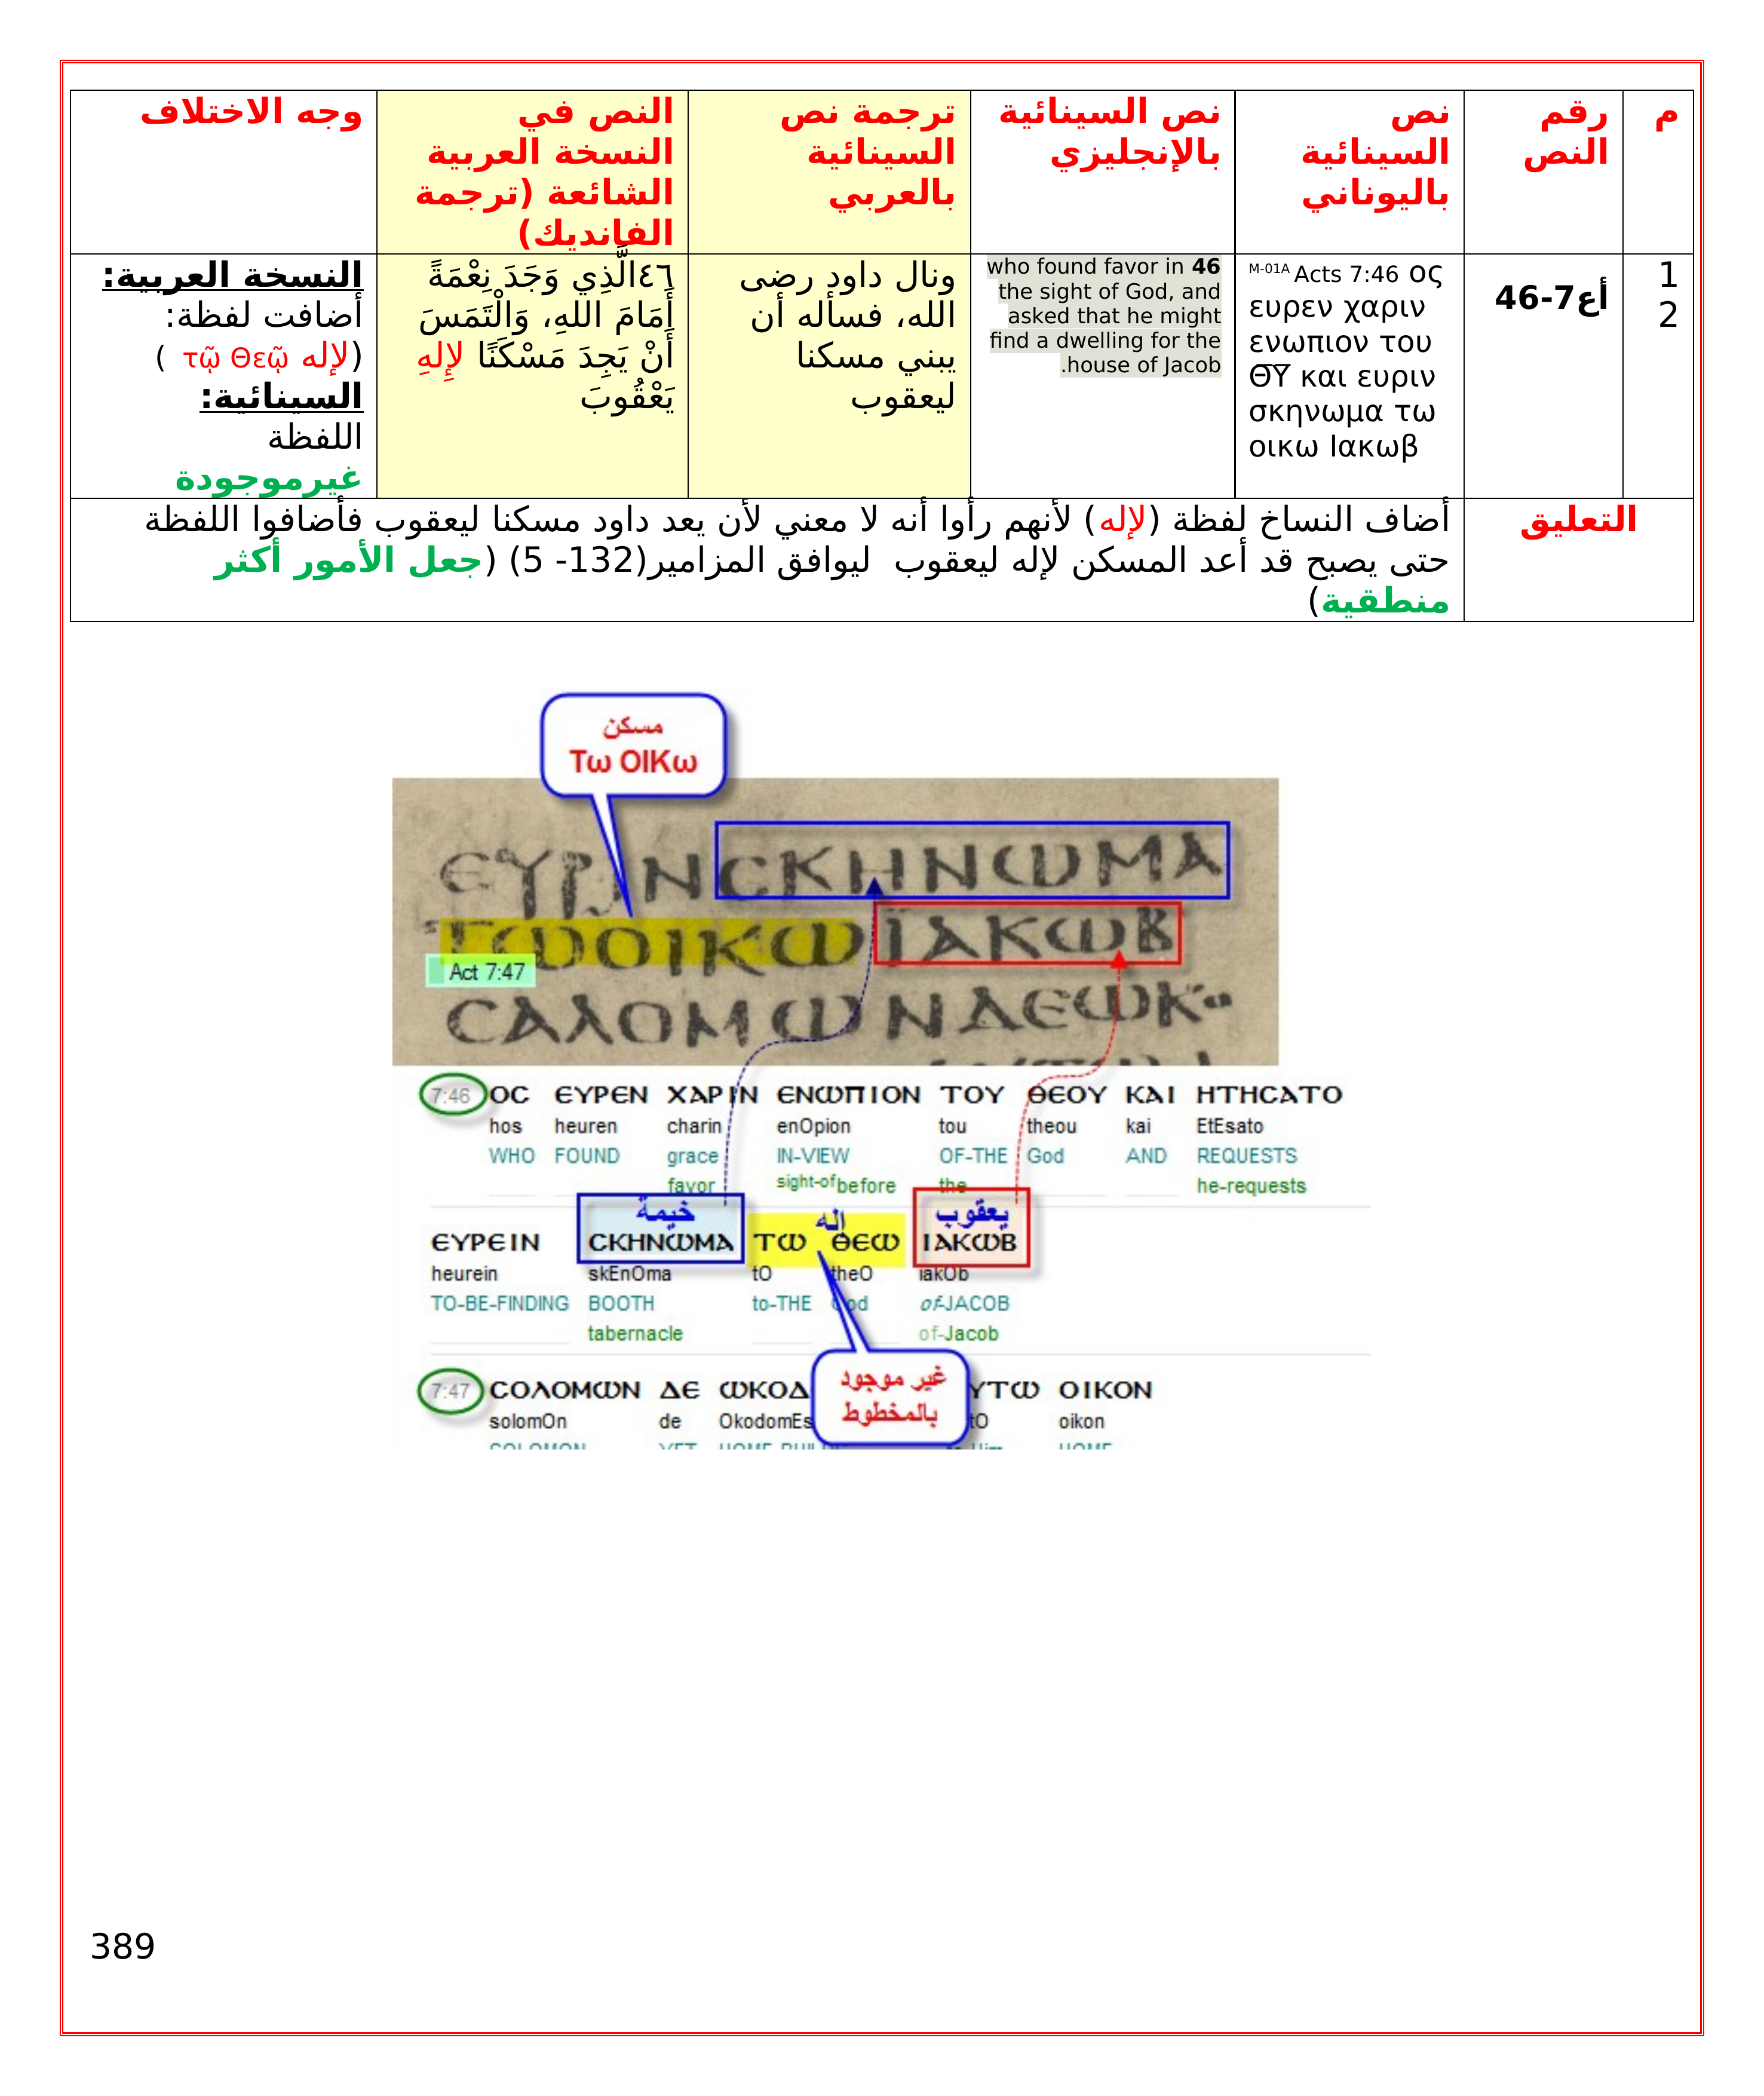 م
رقم
النص
نص
السينائية
باليوناني
نص السينائية
بالإنجليزي
ترجمة نص
السينائية
بالعربي
النص في
النسخة العربية
الشائعة (ترجمة
الفانديك)
وجه الاختلاف
1
2
أع7-46
M-01A Acts 7:46 ος
ευρεν χαριν
ενωπιον του
Θ̅Υ̅ και ευριν
σκηνωμα τω
οικω Ιακωβ
46 who found favor in
the sight of God, and
asked that he might
find a dwelling for the
house of Jacob.
ونال داود رضى
الله، فسأله أن
يبني مسكنا
ليعقوب
٤٦الَّذِي وَجَدَ نِعْمَةً
أَمَامَ اللهِ، وَالْتَمَسَ
أَنْ يَجِدَ مَسْكَنًا لإِلهِ
يَعْقُوبَ
النسخة العربية:
أضافت لفظة:
(لإله τῷ Θεῷ )
السينائية:
اللفظة
غيرموجودة
التعليق
أضاف النساخ لفظة (لإله) لأنهم رأوا أنه لا معني لأن يعد داود مسكنا ليعقوب فأضافوا اللفظة
حتى يصبح قد أعد المسكن لإله ليعقوب ليوافق المزامير(132- 5) (جعل الأمور أكثر
منطقية)
مسكن
Τω ΟΙΚω
ΕΥΡΙΝϹΚΗΝωΜΑ
ΤωΟΙΚωΪΑΚωΒ
Act 7:47
ϹΑΛΟΜωΝΔΕωΚ
7:46 ΟϹ ΕΥΡΕΝ ΧΑΡΙΝ ΕΝωΠΙΟΝ ΤΟΥ ΘΕΟΥ ΚΑΙ ΗΤΗϹΑΤΟ
hos heuren charin enOpion tou theou kai EtEsato
WHO FOUND grace IN-VIEW OF-THE God AND REQUESTS
favor sight-of before the he-requests
خيمة اله يعقوب
ΕΥΡΕΙΝ ϹΚΗΝωΜΑ Τω ΘΕω ΙΑΚωΒ
heurein skEnOma tO theO iakOb
TO-BE-FINDING BOOTH to-THE God of-JACOB
tabernacle of-Jacob
غير موجود
بالمخطوط
7:47 ϹΟΛΟΜωΝ ΔΕ ωΚΟΔ ΥΤω ΟΙΚΟΝ
solomOn de OkodomEs tO oikon
389